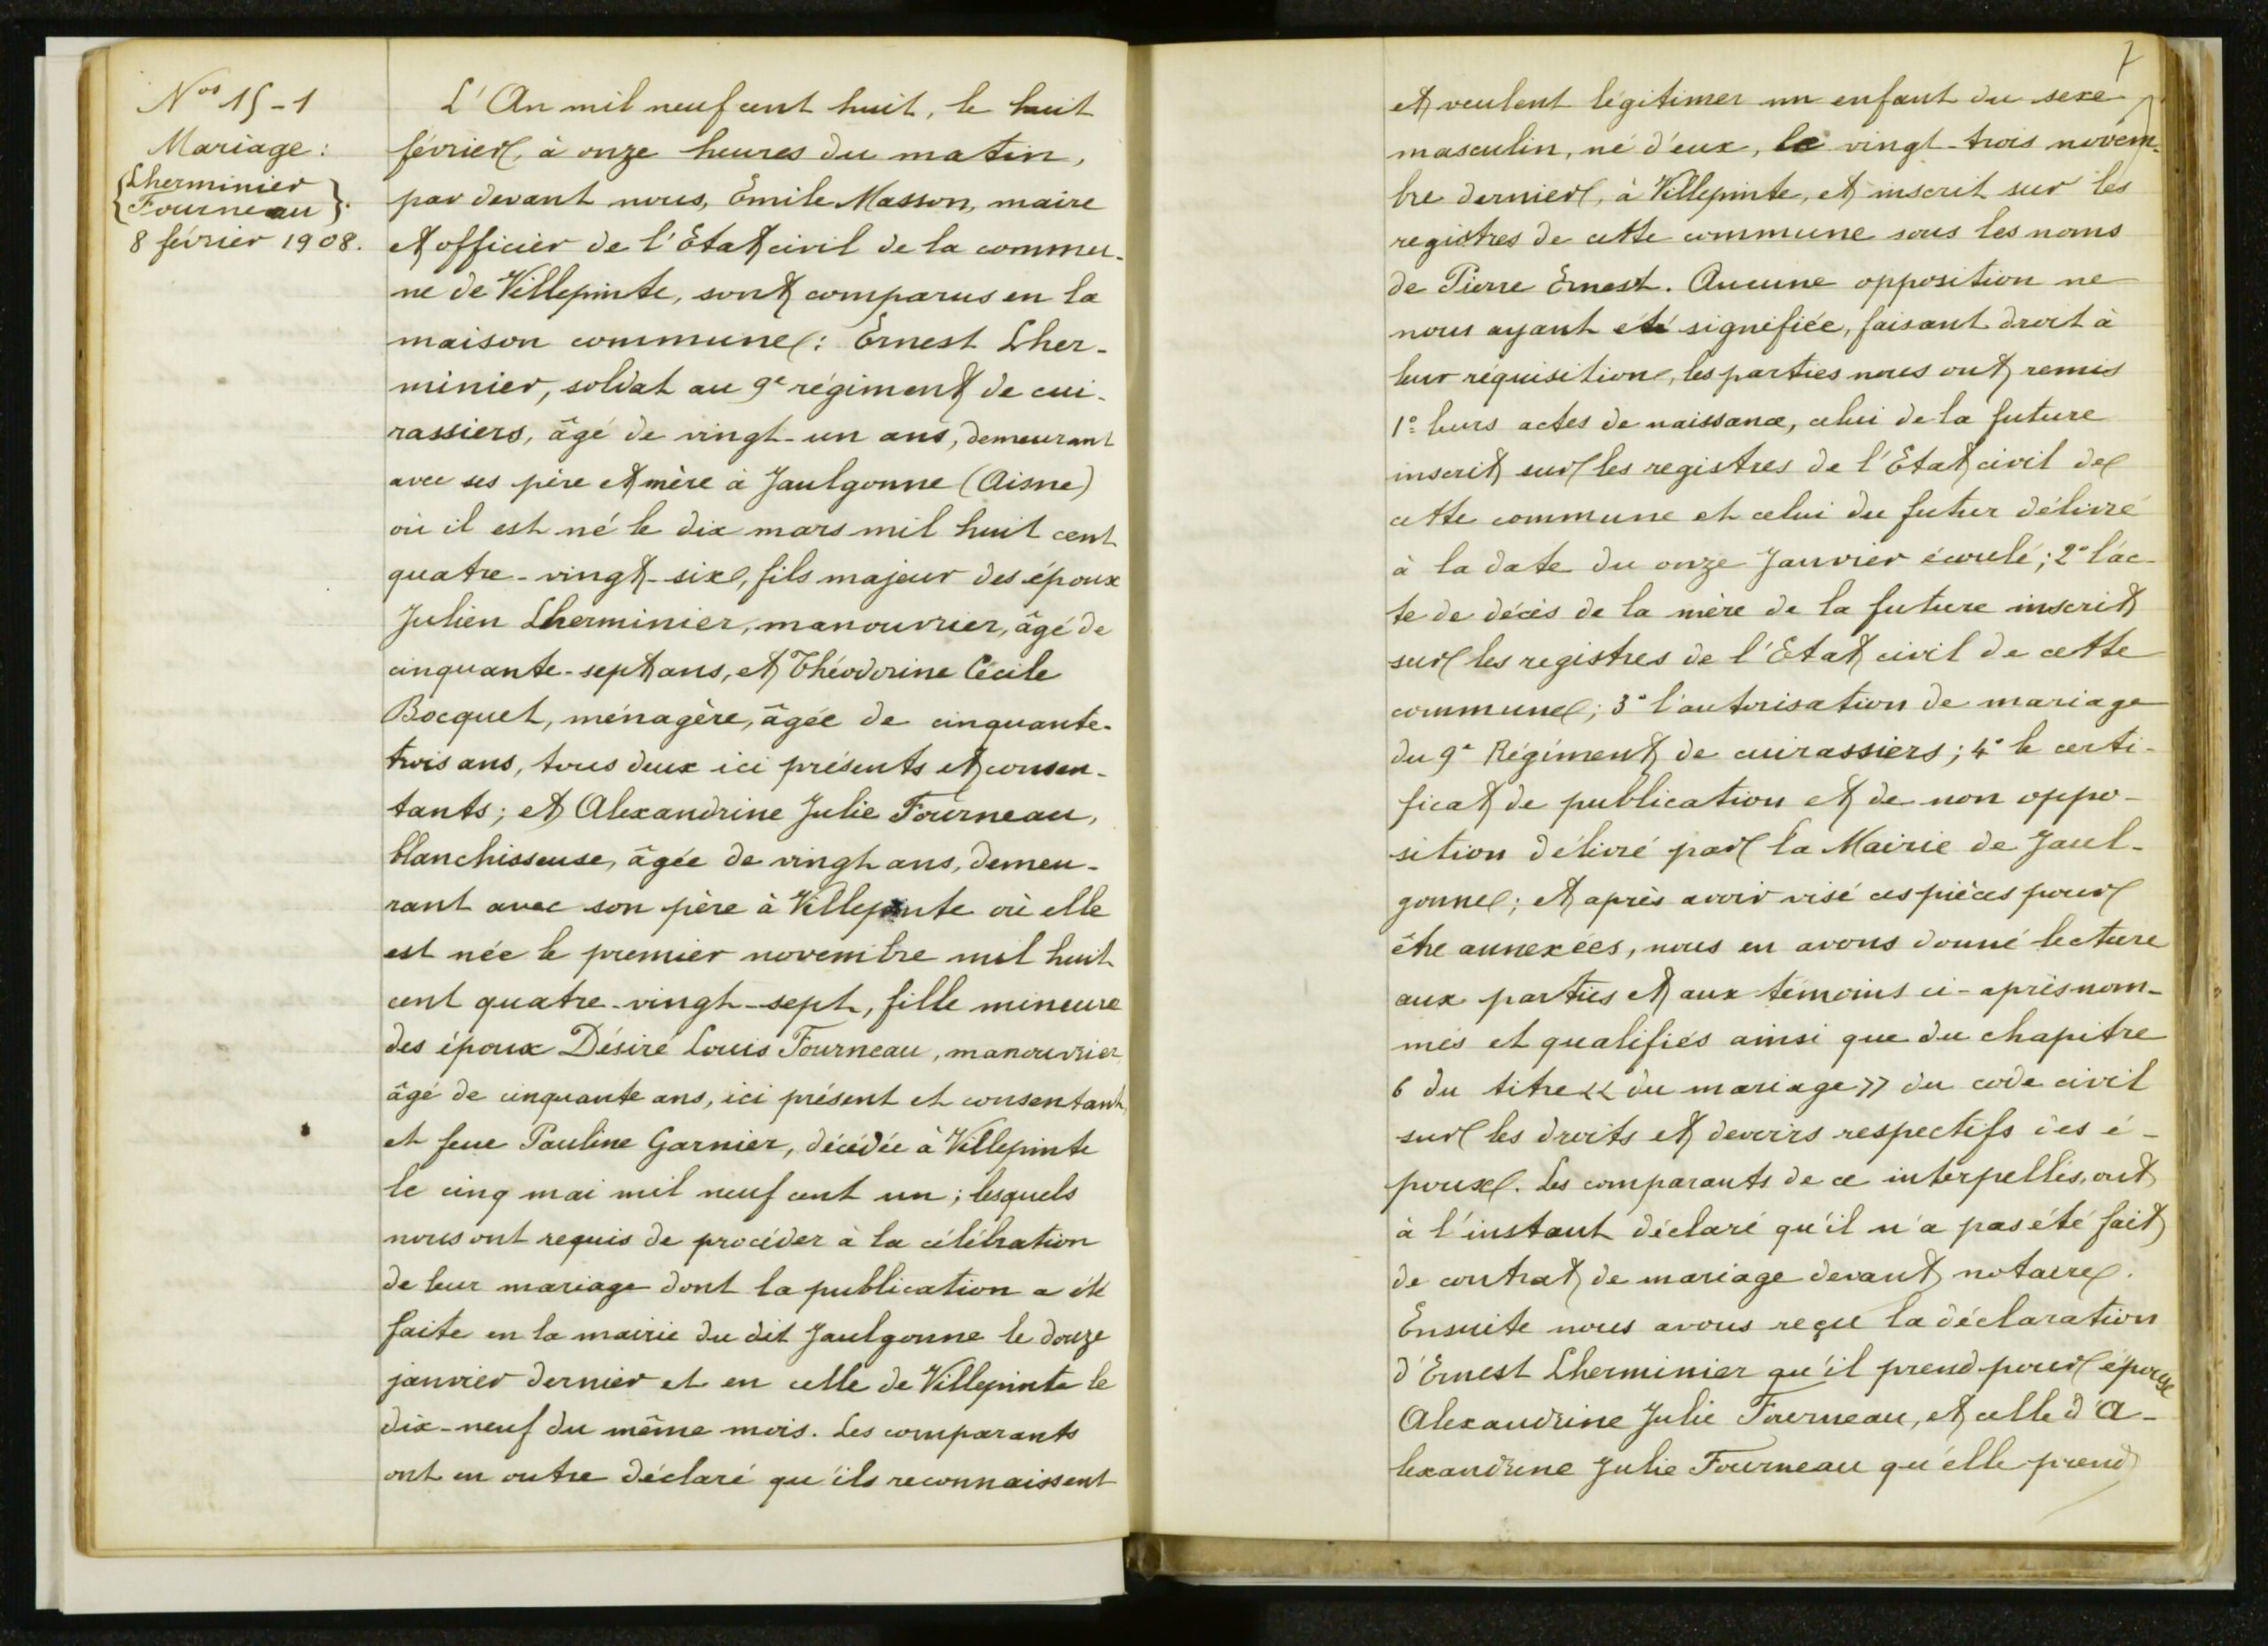 Nos 15-1
Mariage :
Lherminier
Fourneau
8 février 1908.
L'An mil neuf cent huit, le huit
février, à onze heures du matin,
par devant nous, Emile Masson, maire
et officier de l'Etat civil de la commu-
ne de Villepinte, sont comparus en la
maison commune : Ernest Lher-
minier, soldat au 9e régiment de cui-
rassiers, âgé de vingt-un ans, demeurant
avec ses père et mère à Jaulgonne (Aisne)
où il est né le dix mars mil huit cent
quatre-vingt-six, fils majeur des époux
Julien Lherminier, manouvrier, âgé de
cinquante-sept ans, et Théodorine Cécile
Bocquet, ménagère, âgée de cinquante-
trois ans, tous deux ici présents et consen-
tants ; et Alexandrine Julie Fourneau,
blanchisseuse, âgée de vingt ans, demeu-
rant avec son père à Villepinte où elle
est née le premier novembre mil huit
cent quatre-vingt-sept, fille mineure
des époux Désiré Louis Fourneau, manouvrier,
âgé de cinquante ans, ici présent et consentant,
et feue Pauline Garnier, décédée à Villepinte
le cinq mai mil neuf cent un ; lesquels
nous ont requis de procéder à la célébration
de leur mariage dont la publication a été
faite en la mairie du dit Jaulgonne le douze
janvier dernier et en celle de Villepinte le
dix-neuf du même mois. Les comparants
ont en outre déclaré qu'ils reconnaissent
7
et veulent légitimer un enfant du sexe
masculin, né d'eux, le vingt-trois novem-
bre dernier, à Villepinte, et inscrit sur les
registres de cette commune sous les noms
de Pierre Ernest. Aucune opposition ne
nous ayant été signifiée, faisant droit à
leur réquisition, les parties nous ont remis
1° leurs actes de naissance, celui de la future
inscrit sur les registres de l'Etat civil de
cette commune et celui du futur délivré
à la date du onze Janvier écoulé ; 2° l'ac-
te de décès de la mère de la future inscrit
sur les registres de l'Etat civil de cette
commune ; 3° l'autorisation de mariage
du 9e Régiment de cuirassiers ; 4° le certi-
ficat de publication et de non oppo-
sition délivré par la Mairie de Jaul-
gonne ; et après avoir visé ces pièces pour
être annexées, nous en avons donné lecture
aux parties et aux témoins ci-après nom-
més et qualifiés ainsi que du chapitre
6 du titre << du mariage >> du code civil
sur les droits et devoirs respectifs des é-
poux. Les comparants de ce interpellés, ont
à l'instant déclaré qu'il n'a pas été fait
de contrat de mariage devant notaire.
Ensuite nous avons reçu la déclaration
d'Ernest Lherminier qu'il prend pour épouse
Alexandrine Julie Fourneau, et celle d'A-
lexandrine Julie Fourneau qu'elle prend